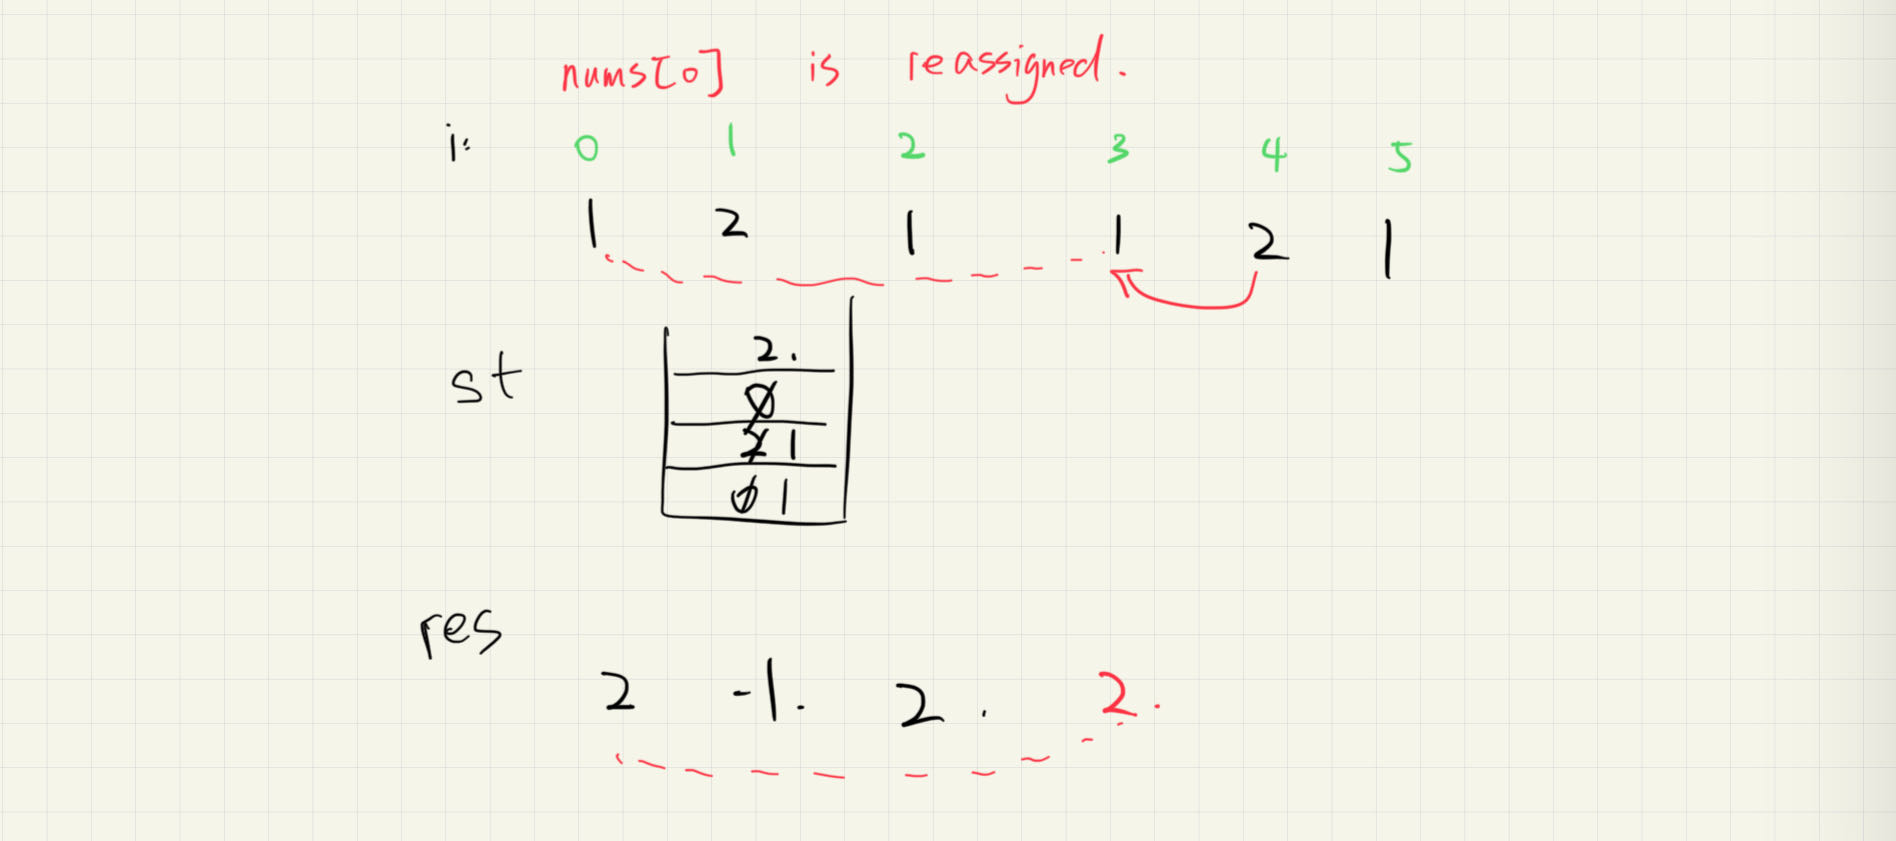 nums[0] is reassigned.
i: 0 1 2 3 4 5
1 2 1 1 2 1
2.
0
st
2 1
0 1
res
2 -1. 2. 2.